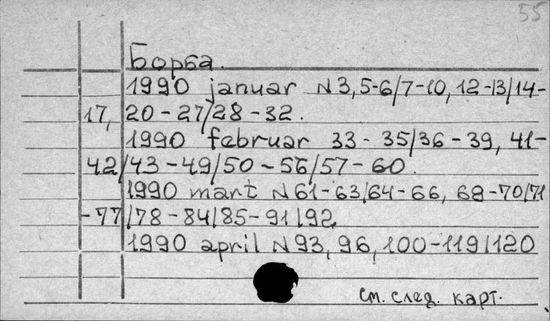 55
Борба.
1990 januar N3,5-6/7-10, 12-13/14-
17, 20-27/28-32.
1990 februar 33-35/36-39, 41-
42/43-49/50-56/57-60
1990 mart N61-63/64-66, 69-70/71
-77/78-84/85-91/92.
1990 april N93, 96, 100-119/120
см. след. карт.